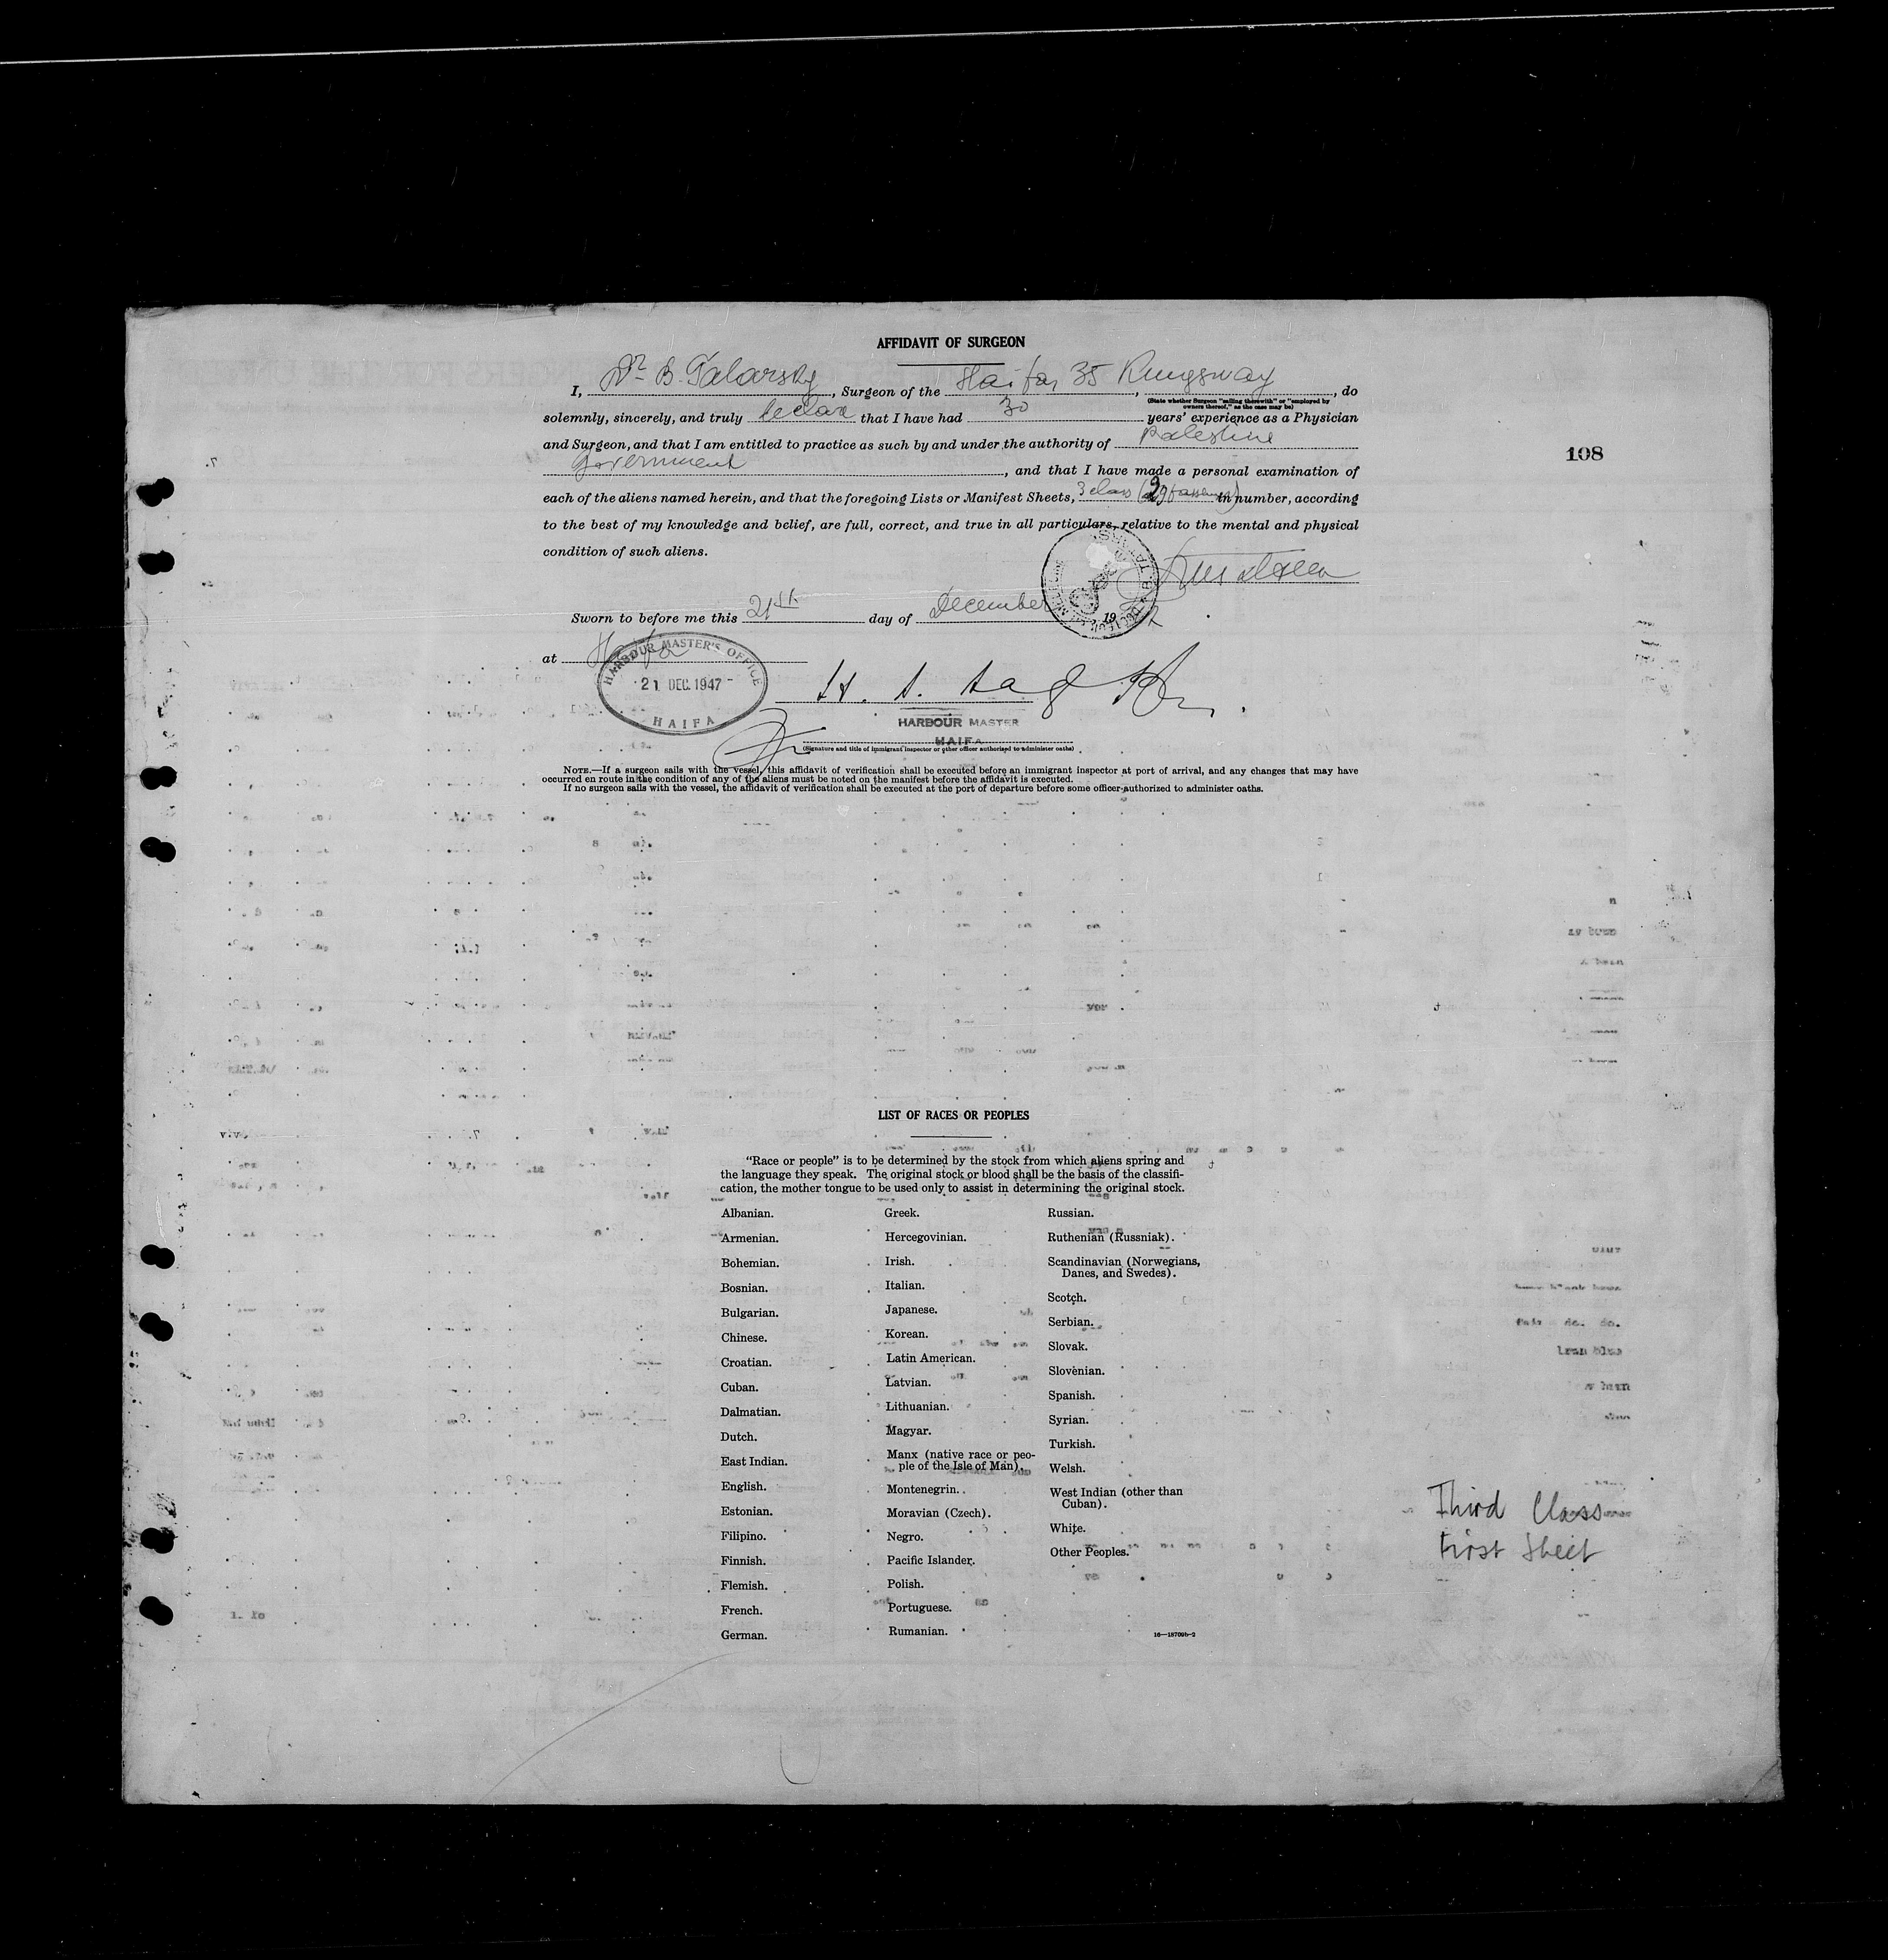 AFFIDAVIT OF SURGEON
I, Dr B. Tatarsky, Surgeon of the Haifa, 35 Kingsway, do
(State whether Surgeon "sailing therewith" or "employed by
owners thereof," as the case may be)
solemnly, sincerely, and truly declare that I have had 30 years' experience as a Physician
and Surgeon, and that I am entitled to practice as such by and under the authority of Palestine
Government, and that I have made a personal examination of
108
each of the aliens named herein, and that the foregoing Lists or Manifest Sheets, 3 class (29 passengers) in number, according
to the best of my knowledge and belief, are full, correct, and true in all particulars, relative to the mental and physical
condition of such aliens.
Sworn to before me this 21st day of December, 19
at Haifa
HARBOUR MASTER'S OFFICE
21 DEC. 1947
HAIFA
HARBOUR MASTER
HAIFA
(Signature and title of immigrant inspector or other officer authorized to administer oaths)
NOTE.—If a surgeon sails with the vessel, this affidavit of verification shall be executed before an immigrant inspector at port of arrival, and any changes that may have
occurred en route in the condition of any of the aliens must be noted on the manifest before the affidavit is executed.
If no surgeon sails with the vessel, the affidavit of verification shall be executed at the port of departure before some officer authorized to administer oaths.
LIST OF RACES OR PEOPLES
"Race or people" is to be determined by the stock from which aliens spring and
the language they speak. The original stock or blood shall be the basis of the classifi-
cation, the mother tongue to be used only to assist in determining the original stock.
Albanian.
Armenian.
Bohemian.
Bosnian.
Bulgarian.
Chinese.
Croatian.
Cuban.
Dalmatian.
Dutch.
East Indian.
English.
Estonian.
Filipino.
Finnish.
Flemish.
French.
German.
Greek.
Hercegovinian.
Irish.
Italian.
Japanese.
Korean.
Latin American.
Latvian.
Lithuanian.
Magyar.
Manx (native race or peo-
ple of the Isle of Man).
Montenegrin.
Moravian (Czech).
Negro.
Pacific Islander.
Polish.
Portuguese.
Rumanian.
Russian.
Ruthenian (Russniak).
Scandinavian (Norwegians,
Danes, and Swedes).
Scotch.
Serbian.
Slovak.
Slovenian.
Spanish.
Syrian.
Turkish.
Welsh.
West Indian (other than
Cuban).
White.
Other Peoples.
16—18709b-2
Third Class
First Sheet